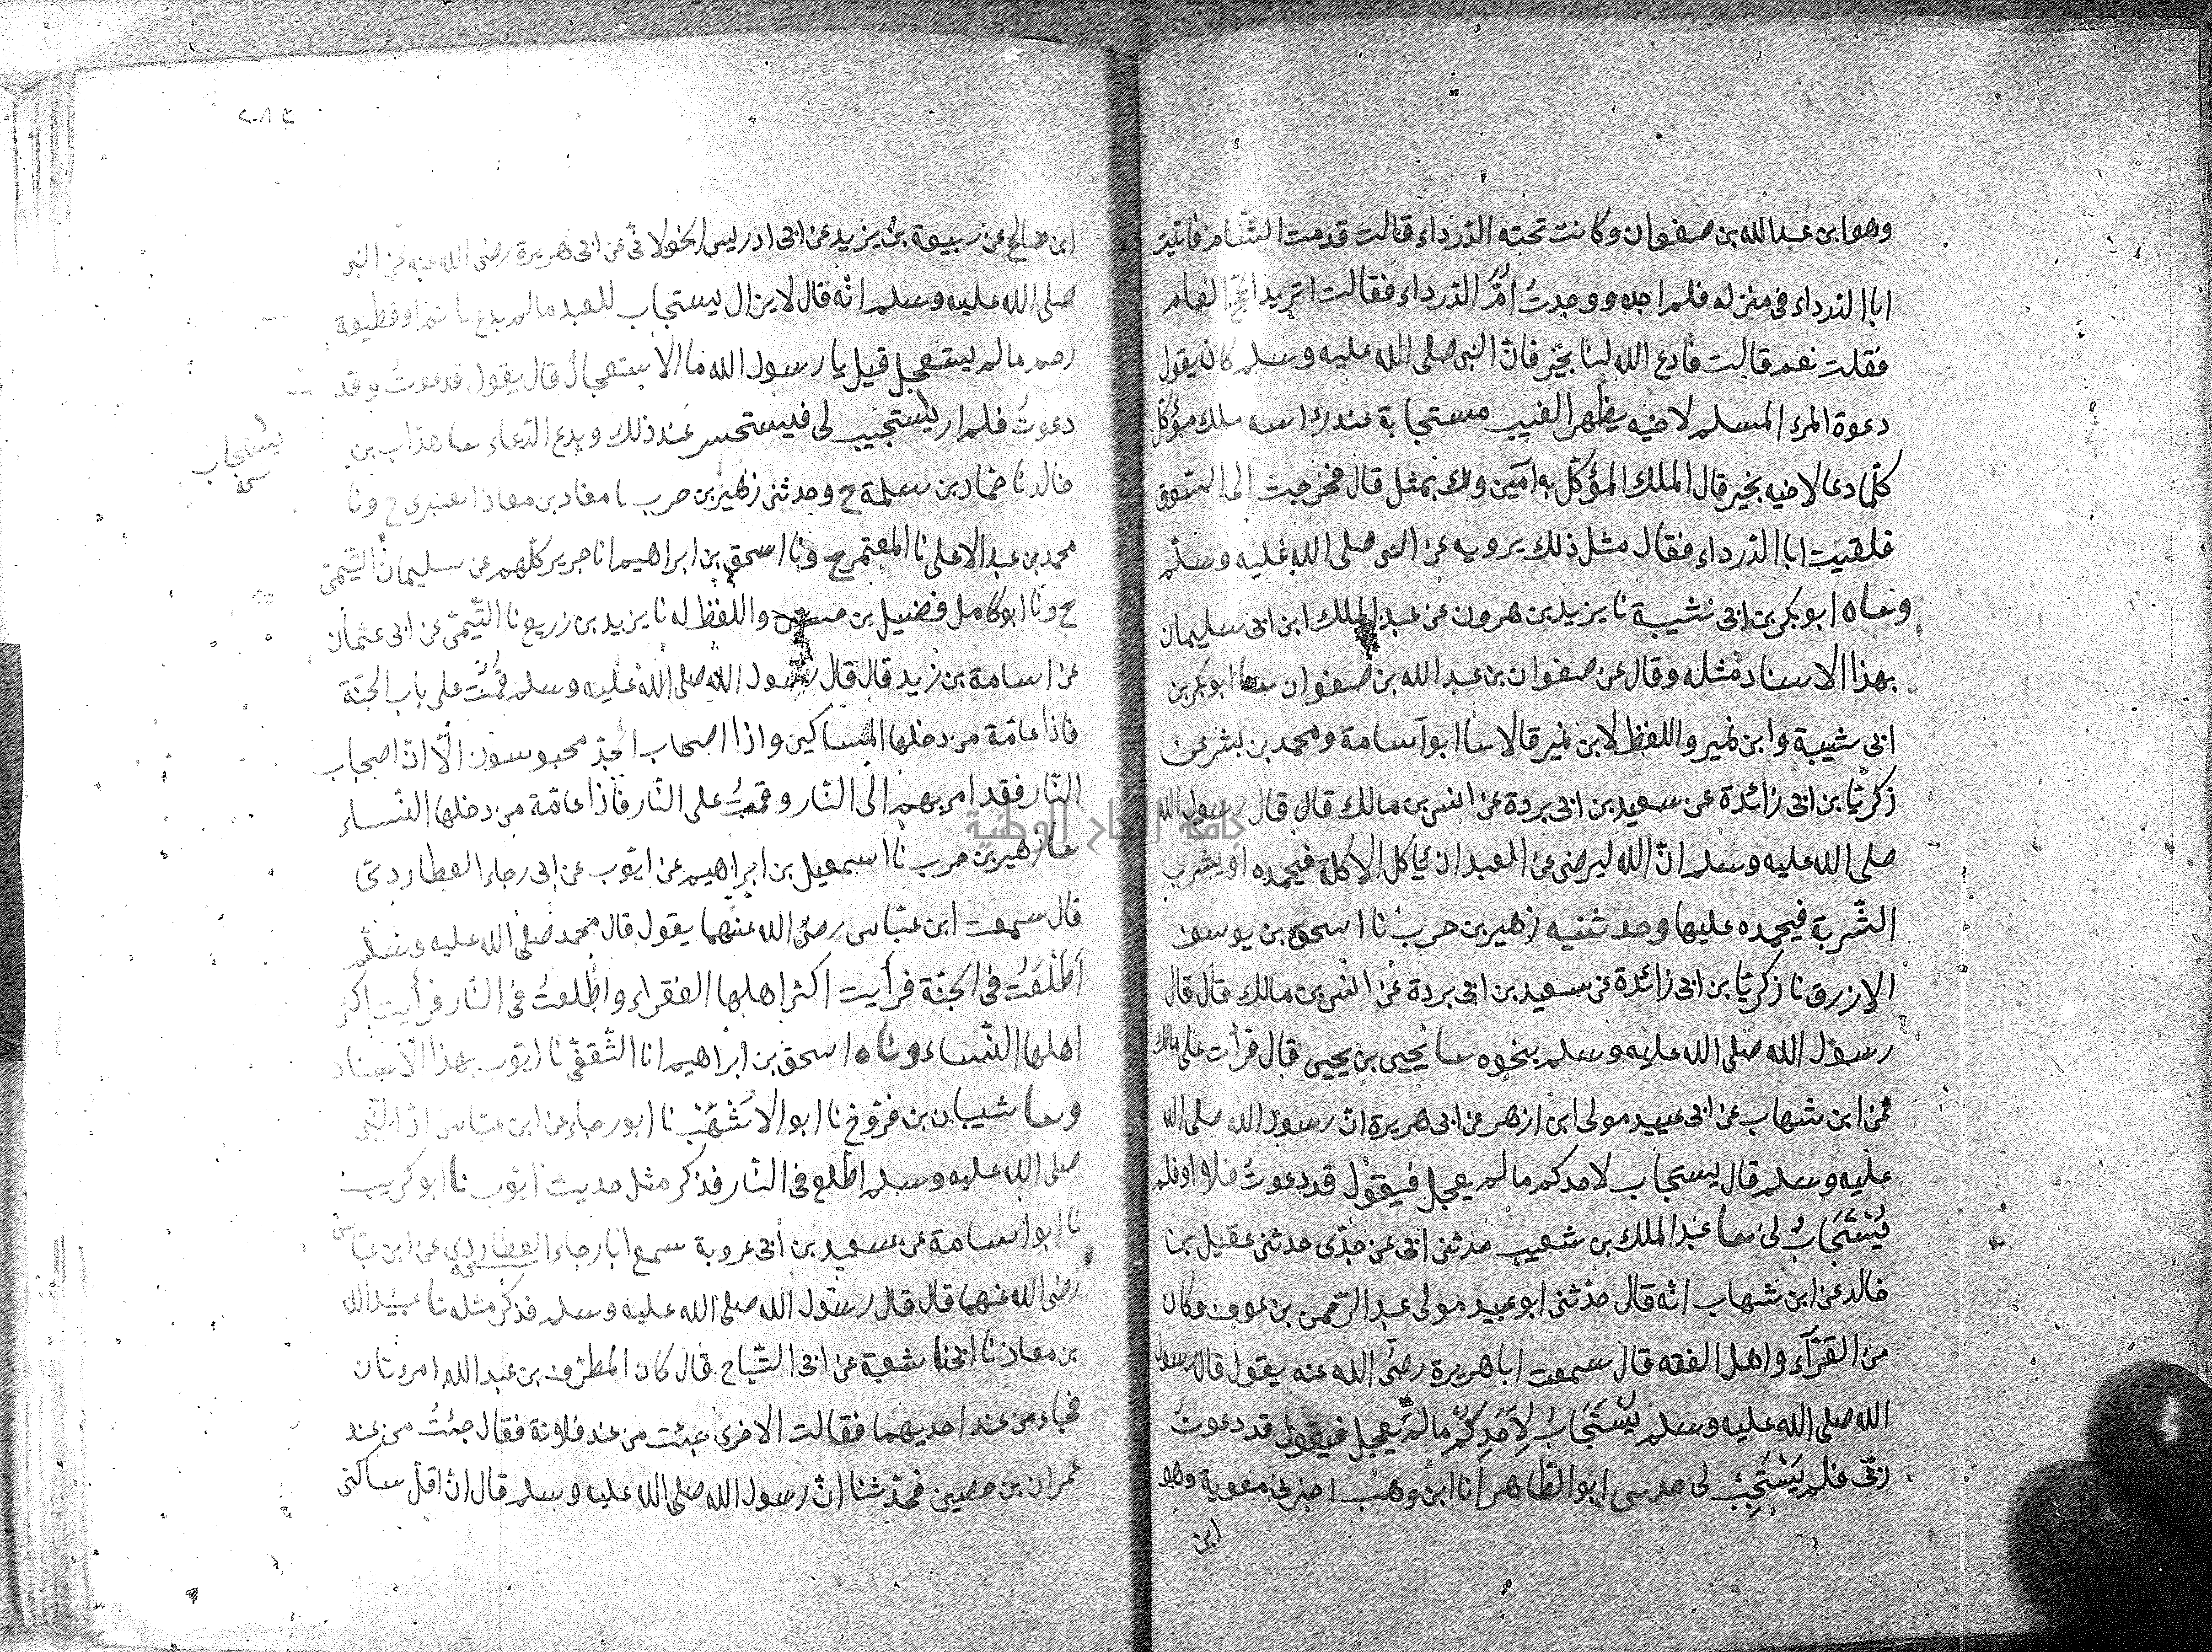 وهوا بن عبد الله بن صفوان وكانت تحته الدّرداء قالت قدمت الشّام فاتيت
ابا الدرداء فى منزله فلم اجده ووجدتُ امُّ الدّرداء فقالت اتريد الحجّ العام
فقلت نعم قالت فادع الله لنا بخير فانّ النبى صلى الله عليه وسلم كان يقول
دعوة المرء المسلم لاخيه بظهر الغيب مستجابة عند راسه ملك مؤكّل
كلّما دعا لاخيه بخير قال الملك المؤكّل به آمين ولك بمثل قال فخرجت الى السّوق
فلقيت ابا الدّرداء فقال مثل ذلك يرويه عن النبى صلى الله عليه وسلّم
وناه ابو بكر بن ابى شيبة نا يزيد بن هرون عن عبد الملك ابن ابى سليمان
بهذا الاسناد مثله وقال عن صفوان بن عبد الله بن صفوان سا ابو بكر بن
ابى شيبة وابن نمير واللفظ لابن نمير قالا سا ابو آسامة ومحمد بن بشر عن
زكريّا بن ابى زائدة عن سعيد بن ابى بردة عن انس بن مالك قال قال رسول الله
صلى الله عليه وسلم انّ الله ليرضى عن العبد ان ياكل الاكلة فيحمده او يشرب
الشّربة فيحمده عليها وحدثنيه زهير بن حرب نا اسحق بن يوسف
الازرق نا زكريّا بن ابى زائدة عن سعيد بن ابى بردة عن انس بن مالك قال قال
رسول الله صلى الله عليه وسلم بنحوه سا يحيى بن يحيى قال قرأت على مالك
عن ابن شهاب عن ابى عبيد مولى ابن ازهر عن ابى هريرة انّ رسول الله صلى الله
عليه وسلم قال يستجاب لاحدكم ما لم يعجل فيقول قد دعوتُ فلا او فلم
يُسْتَجَابُ لى سا عبد الملك بن شعيب حدثنى ابى عن جدّى حدثنى عقيل بن
خالد عن ابن شهاب انّه قال حدّثنى ابو عبيد مولى عبد الرّحمن بن عوف وكان
من القرّآء واهل الفقه قال سمعت ابا هريرة رضى الله عنه يقول قال رسول
الله صلى الله عليه وسلم يُسْتَجَابُ لِاَحَدِكُمْ ما لَمْ يعجل فيقول قد دعوتُ
ربّى فلم يَسْتَجِبْ لى حدسى ابو الطّاهر انا ابن وهب اخبرنى معوية وهو
ابن
جامعة النجاح الوطنية
٢٠٨٣
ابن صالح عن ربيعة بن يزيد عن ابى ادريس الخولانّى عن ابى هريرة رضى الله عنه عن النبى
صلى الله عليه وسلم انّه قال لا يزال يستجاب للعبد ما لم يدع باثم او قطيعة
رحم ما لم يستعجل قيل يا رسول الله ما الاستعجال قال يقول قد دعوتُ وقد
دعوتُ فلم ار يستجيب لى فيستحسر عند ذلك ويدع الدّعاء سا هذاب بن
يستجاب
نسخه
خالد نا حمّاد بن سلمة ح وحدثنى زهير بن حرب نا معاذ بن معاذ العنبرى ح ونا
محمد بن عبد الاعلى نا المعتمر ح ونا اسحق بن ابراهيم انا جرير كلّهم عن سليمان التّيمّى
ح ونا ابو كامل فضيل بن حسين واللّفظ له نا يزيد بن زريع نا التّيمّى عن ابى عثمان
عن اسامة بن زيد قال قال رسول الله صلى الله عليه وسلم قمتُ على باب الجنّة
فاذا عامّة من دخلها المساكين واذا اصحاب الجدّ محبوسون الّا انّ اصحاب
النّار فقد امر بهم الى النّار وقمتُ على النّار فاذا عامّة من دخلها النّساء
سا زهير بن حرب نا اسمعيل بن ابراهيم عن ايّوب عن ابى رجاء العطاردىّ
قال سمعت ابن عبّاس رضى الله عنهما يقول قال محمد صلى الله عليه وسلّم
اطّلعتُ فى الجنّة فرأيت اكثر اهلها الفقراء واطّلعتُ فى النّار فرأيت اكثر
اهلها النّساء وناه اسحق بن ابراهيم انا الثّقفّى نا ايّوب بهذا الاسناد
وسا شيبان بن فرّوخ نا ابو الاشهب نا ابو رجاء عن ابن عبّاس انّ النّبى
صلى الله عليه وسلم اطّلع فى النّار فذكر مثل حديث ايّوب نا ابو كريب
نا ابو اسامة عن سعيد بن ابى عروبة سمع ابا رجاء العطاردى عن ابن عبّاس
رضى الله عنهما قال قال رسول الله صلى الله عليه وسلم فذكر مثله نا عبيد الله
بن معاذ نا ابى نا شعبة عن ابى التّيّاح قال كان المطرّف بن عبد الله امرءتان
فجاء من عند احديهما فقالت الاخرى جئت من عند فلانة فقال جئتُ من عند
عمران بن حصين فحدّثنا انّ رسول الله صلى الله عليه وسلم قال انّ اقلّ ساكنى